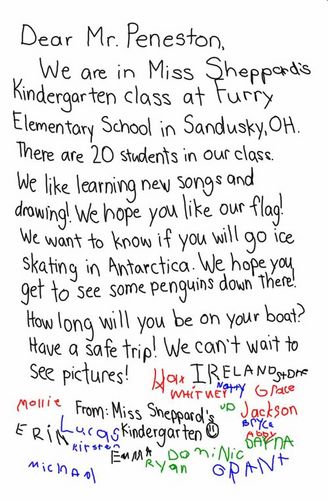 Dear Mr. Peneston,
We are in Miss Sheppard's
Kindergarten class at Furry
Elementary School in Sandusky, OH.
There are 20 students in our class.
We like learning new songs and
drawing! We hope you like our flag!
We want to know if you will go ice
skating in Antarctica. We hope you
get to see some penguins down there!
How long will you be on your boat?
Have a safe trip! We can't wait to
see pictures!
IRELAND
WHITNEY Grace
Mollie From: Miss Sheppard's JD Jackson
ERIN Lucas Kindergarten Bryce
Kirsten Abby
EMMA DAYNA
Ryan DomiNic
micHAel GRANt